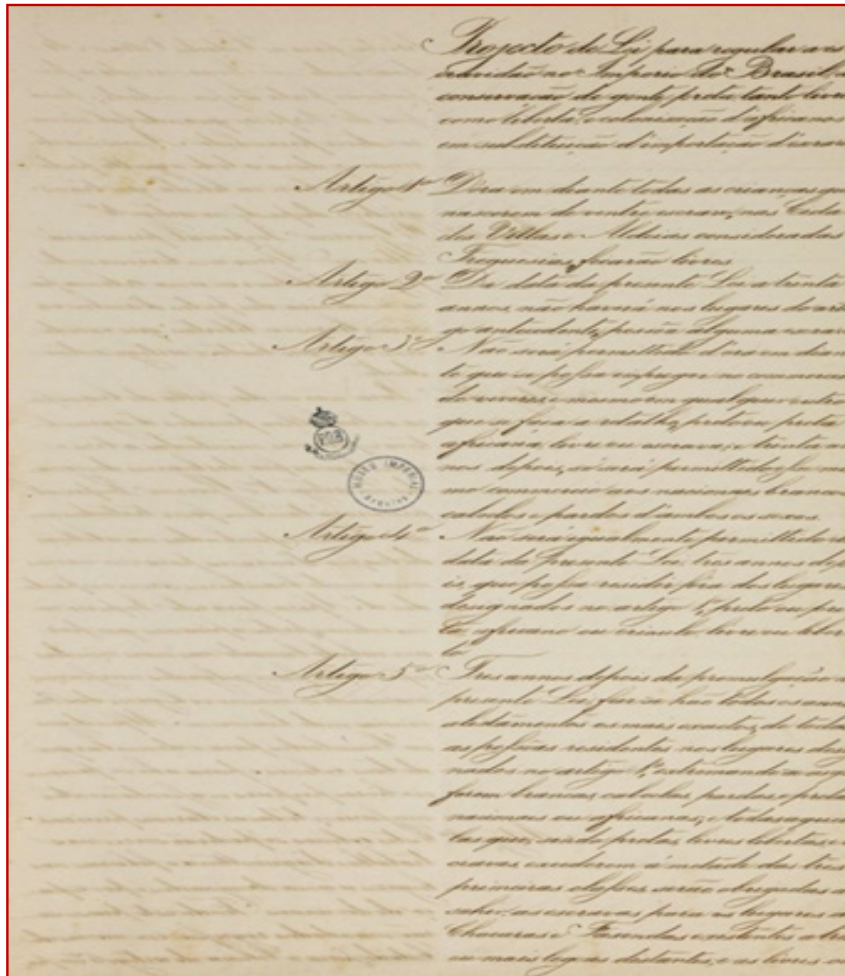 Projecto de Lei para regular a es
cravidão no Imperio do Brasil, a
conservação de gente preta, tanto livre
como liberta, e colonisação d'africanos
em substituição d'importação d'escrav
Artigo 1º D'ora em deante todas as crianças que
nascerem de ventre escravo, nas Cida
des Villas e Aldeias consideradas
Freguesias, ficarão livres
Artigo 2º Da data da presente Lei a trinta
annos, não haverá nos lugares do arti
go antecedente, pessôa alguma escrav
Artigo 3º Não será permittido d'ora em dian
te que se possa empregar no commercio
de viveres e mesmo em qualquer outro
que se faça a retalho, preto ou preta
africana, livre ou escrava; e trinta an
nos depois, só será permittido o mes
mo commercio aos nacionaes brancos
cabclos e pardos d'ambos os sexos.
Artigo 4º Não será igualmente permittido da
data da presente Lei, tres annos depo
is, que possa residir fóra dos lugares
designados no artigo 1º, preto ou pre
ta, africano ou crioulo, livre ou liber
to
Artigo 5º Tres annos depois da promulgação da
presente Lei, far-se-hão todos os annos
alistamentos os mais exactos, de todas
as pessôas residentes nos lugares desig
nados no artigo 1º, extremando-se as que
forem brancas, cabclas, pardas, e pretas
nacionaes ou africanas; e todas aquel
las que, sendo pretas, livres libertas, e
cravas excederem á metade das tres
primeiras classes, serão obrigadas a
sahir, as escravas para os lugares de
Chacaras e Fasendas existentes a tres
ou mais legoas distantes, e as livres ou
MUSEU IMPERIAL
ARCHIVO